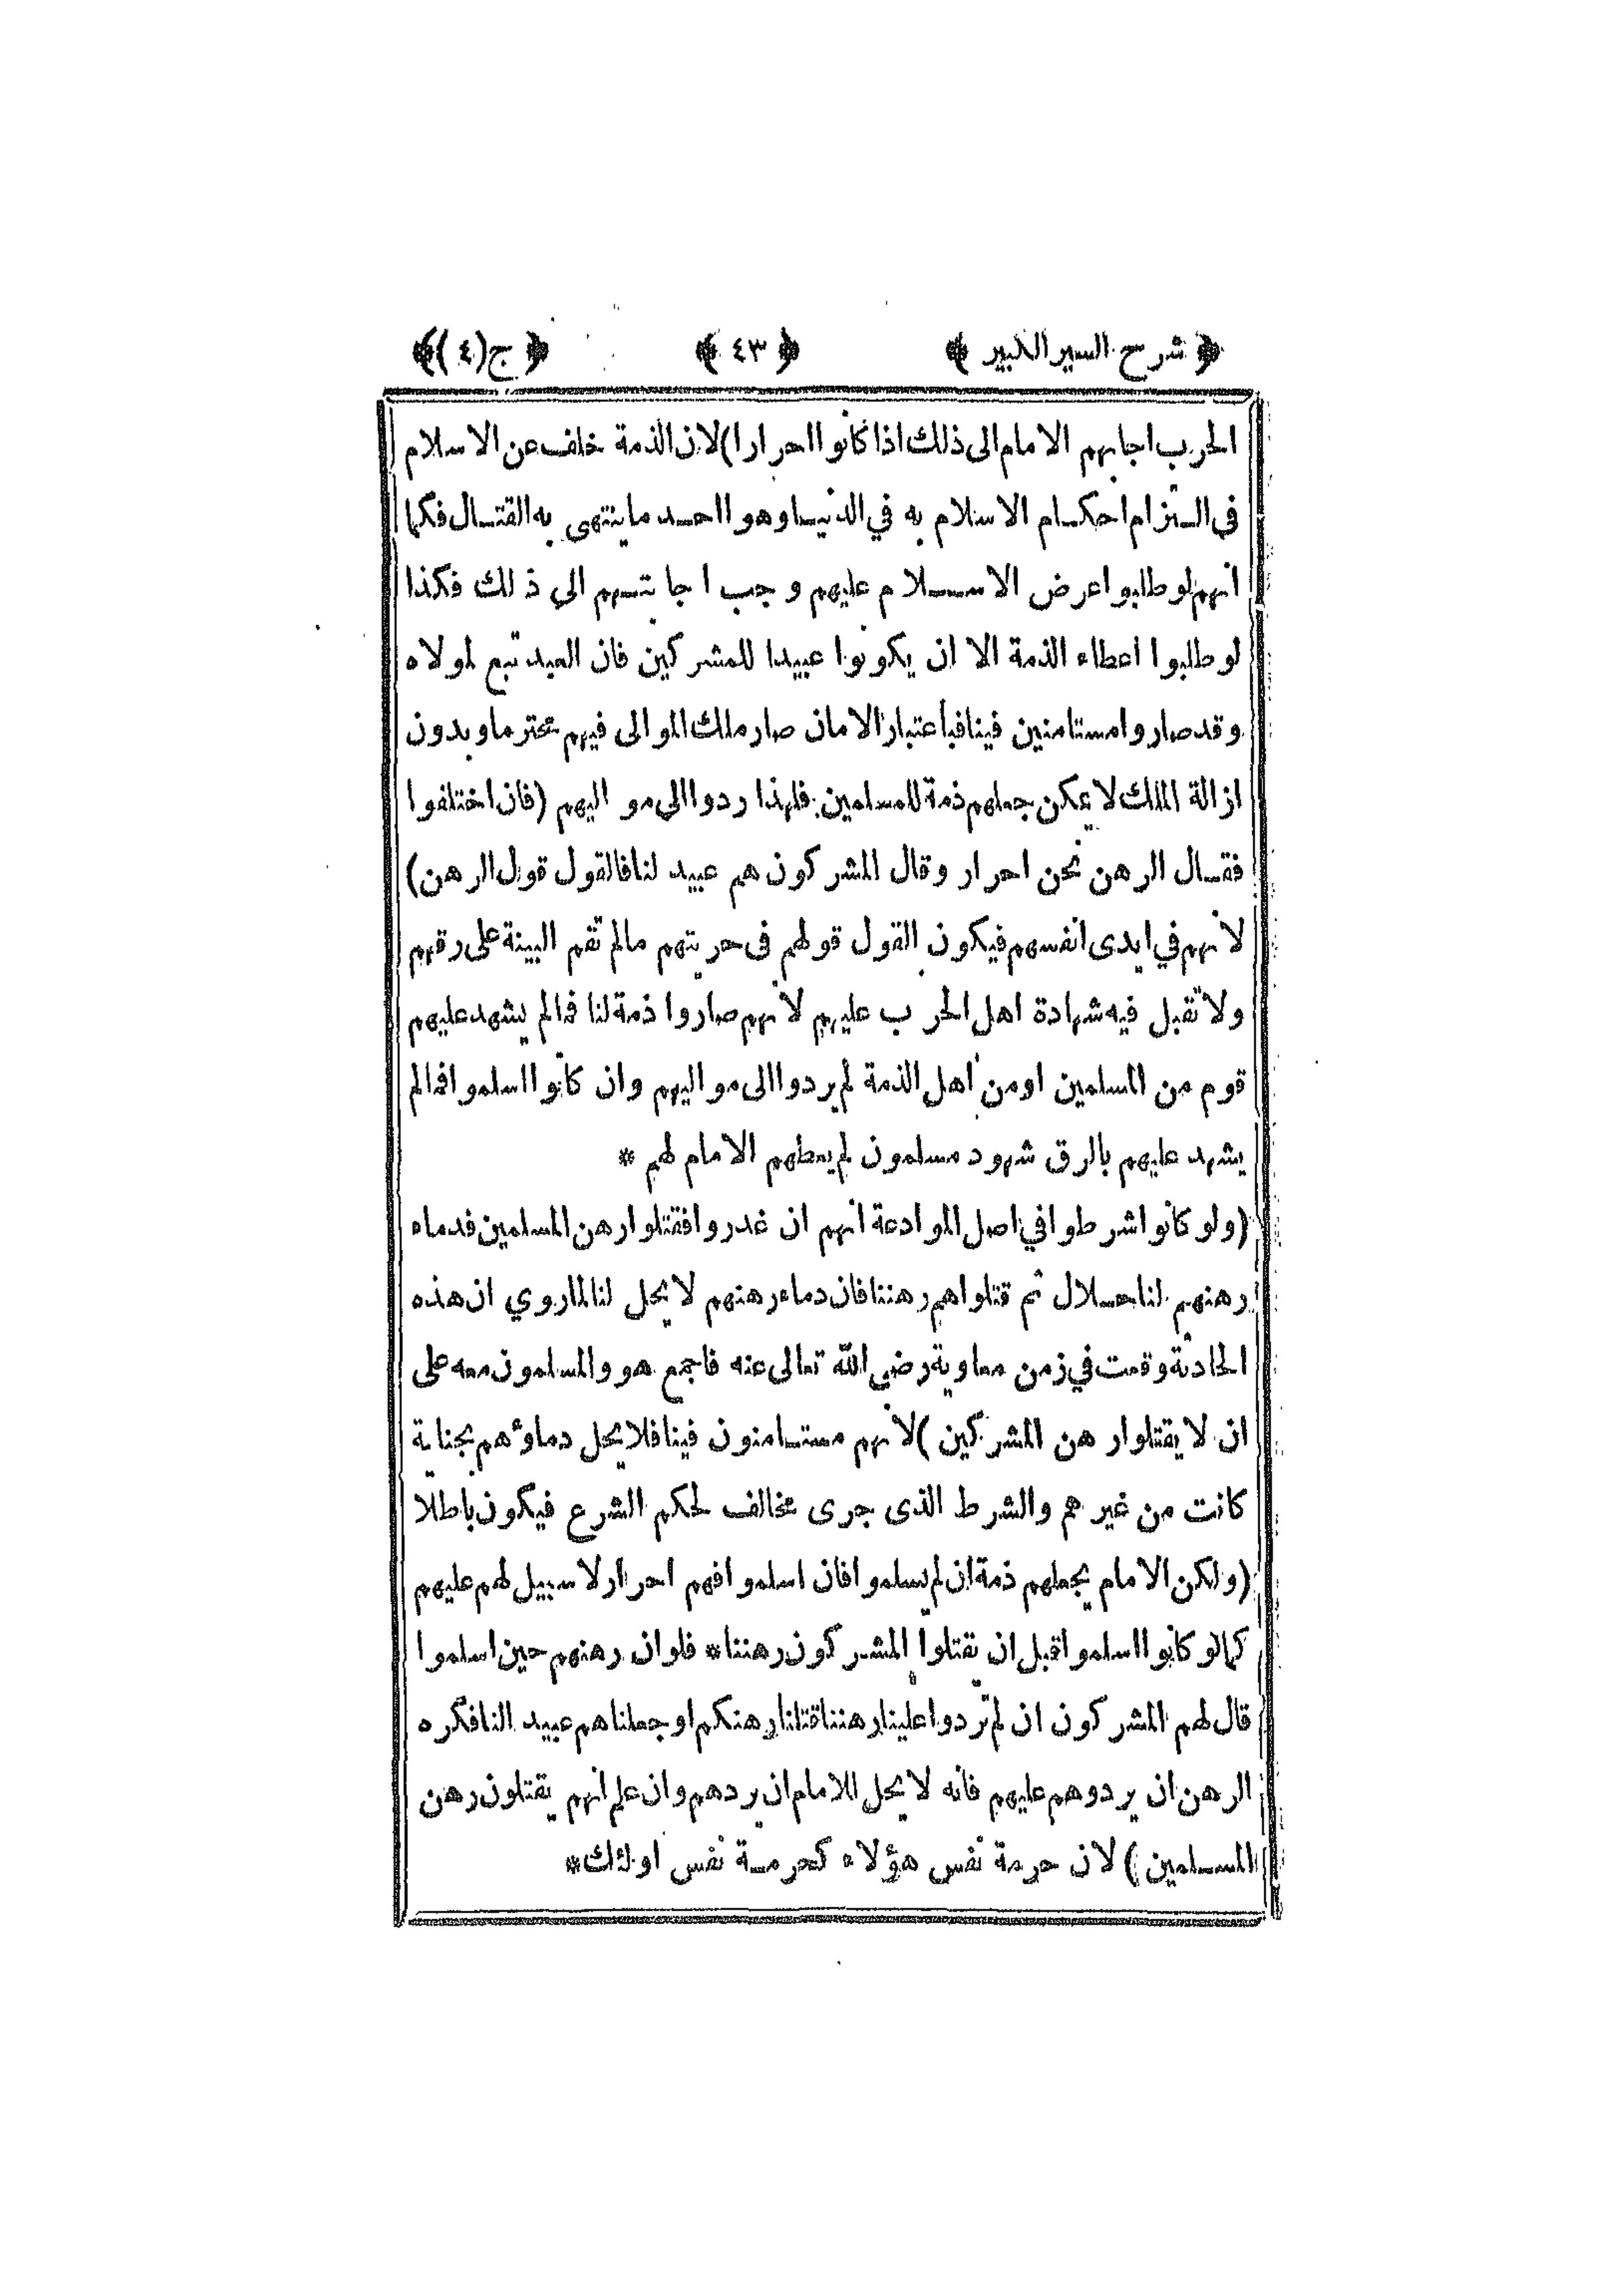 ﴿ شرح السير الكبير ﴾ ﴿ ٤٣ ﴾ ﴿ ج (٤) ﴾
الحرب اجابهم الامام الى ذلك اذا كانوا احرارا) لان الذمة خلف عن الاسلام
فى التزام احكام الاسلام به في الدنيا وهو احد ما ينتهى به القتال فكما
انهم لو طلبوا عرض الاسلام عليهم وجب اجابتهم الي ذلك فكذا
لو طلبوا اعطاء الذمة الا ان يكونوا عبيدا للمشركين فان العبد تبع لمولاه
وقد صاروا مستامنين فينا فبأعتبار الامان صار ملك الموالى فيهم محترما وبدون
ازالة الملك لا يمكن جعلهم ذمة للمسلمين فلهذا ردوا الى مواليهم (فان اختلفوا
فقال الرهن نحن احرار وقال المشركون هم عبيد لنا فالقول قول الرهن)
لانهم في ايدى انفسهم فيكون القول قولهم فى حريتهم مالم تقم البينة على رقهم
ولا تقبل فيه شهادة اهل الحرب عليهم لانهم صاروا ذمة لنا فمالم يشهد عليهم
قوم من المسلمين او من اهل الذمة لم يردوا الى مواليهم وان كانوا اسلموا فمالم
يشهد عليهم بالرق شهود مسلمون لم يعطهم الامام لهم *
(ولو كانوا شرطوا في اصل الموادعة انهم ان غدروا فقتلوا رهن المسلمين فدماء
رهنهم لنا حلال ثم قتلوا هم رهننا فان دماء رهنهم لا يحل لنا لما روي ان هذه
الحادثة وقعت في زمن معاوية رضي الله تعالى عنه فاجمع هو والمسلمون معه على
ان لا يقتلوا رهن المشركين) لانهم مستامنون فينا فلا يحل دماؤهم بجناية
كانت من غيرهم والشرط الذى جرى مخالف لحكم الشرع فيكون باطلا
(ولكن الامام يجعلهم ذمة ان لم يسلموا فان اسلموا فهم احرار لا سبيل لهم عليهم
كما لو كانوا اسلموا قبل ان تقتلوا المشركون رهننا * فلو ان رهنهم حين اسلموا
قال لهم المشركون ان لم تردوا علينا رهننا قتلنا رهنكم او جعلناهم عبيد النا فكره
الرهن ان يردوهم عليهم فانه لا يحل للامام ان يردهم وان علم انهم يقتلون رهن
المسلمين) لان حرمة نفس هؤلاء كحرمة نفس اولئك *